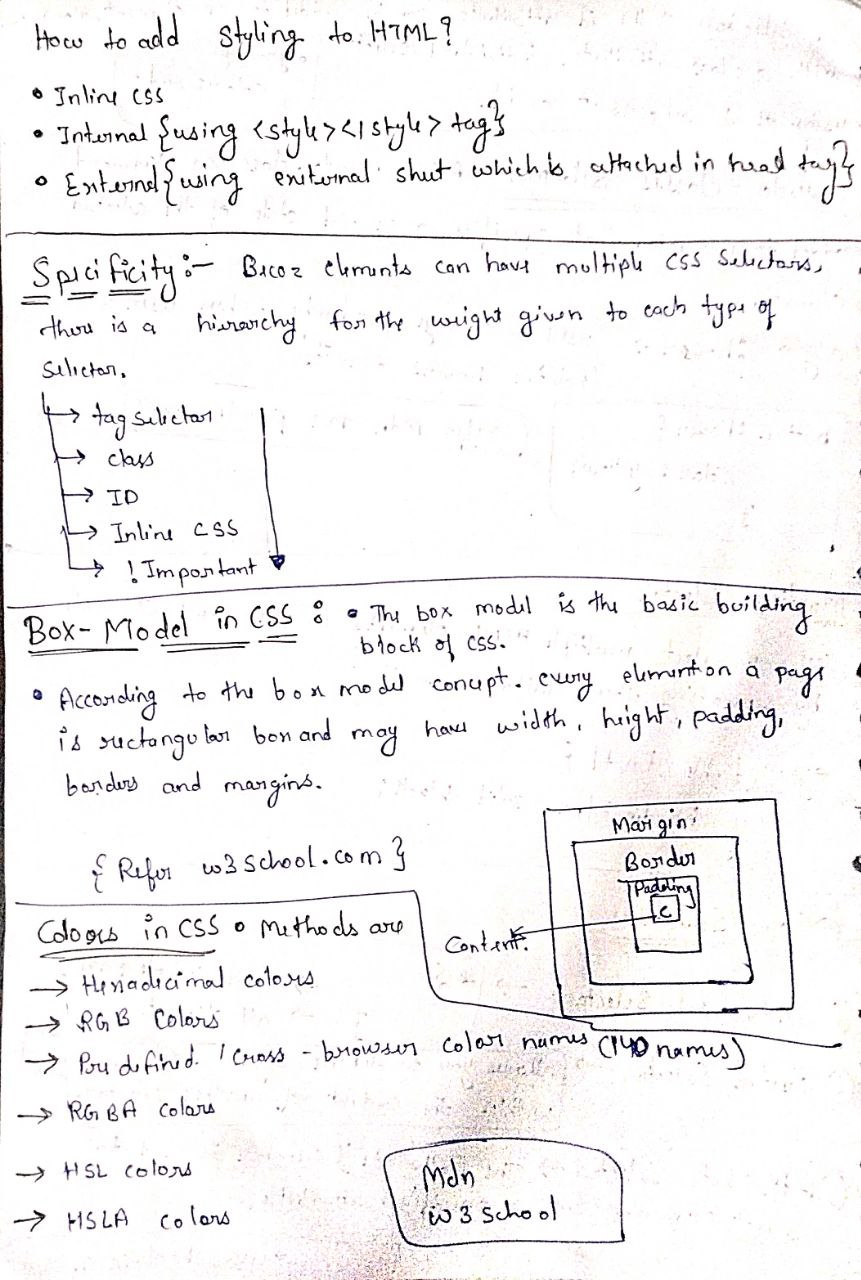 How to add Styling to HTML?
• Inline CSS
• Internal {using <style></style> tag}
• External {using exiternal shut, which is attached in head tag}
Specificity :- Becoz elements can have multiple CSS Selectors,
there is a hierarchy for the weight given to each type of
Selector.
→ tag selector
→ class
→ ID
→ Inline CSS
→ ! Important
Box-Model in CSS : • The box model is the basic building
block of CSS.
• According to the box model concept. every element on a page
is rectangular box and may have width, height, padding,
borders and margins.
{ Refer w3 school.com }
Margin
Border
Padding
C
Content.
Colors in CSS • Methods are
→ Hexadecimal colors
→ RGB Colors
→ Pre defined / Cross - browser color names (140 names)
→ RGBA colors
→ HSL colors
→ HSLA colors
Mdn
w3 school